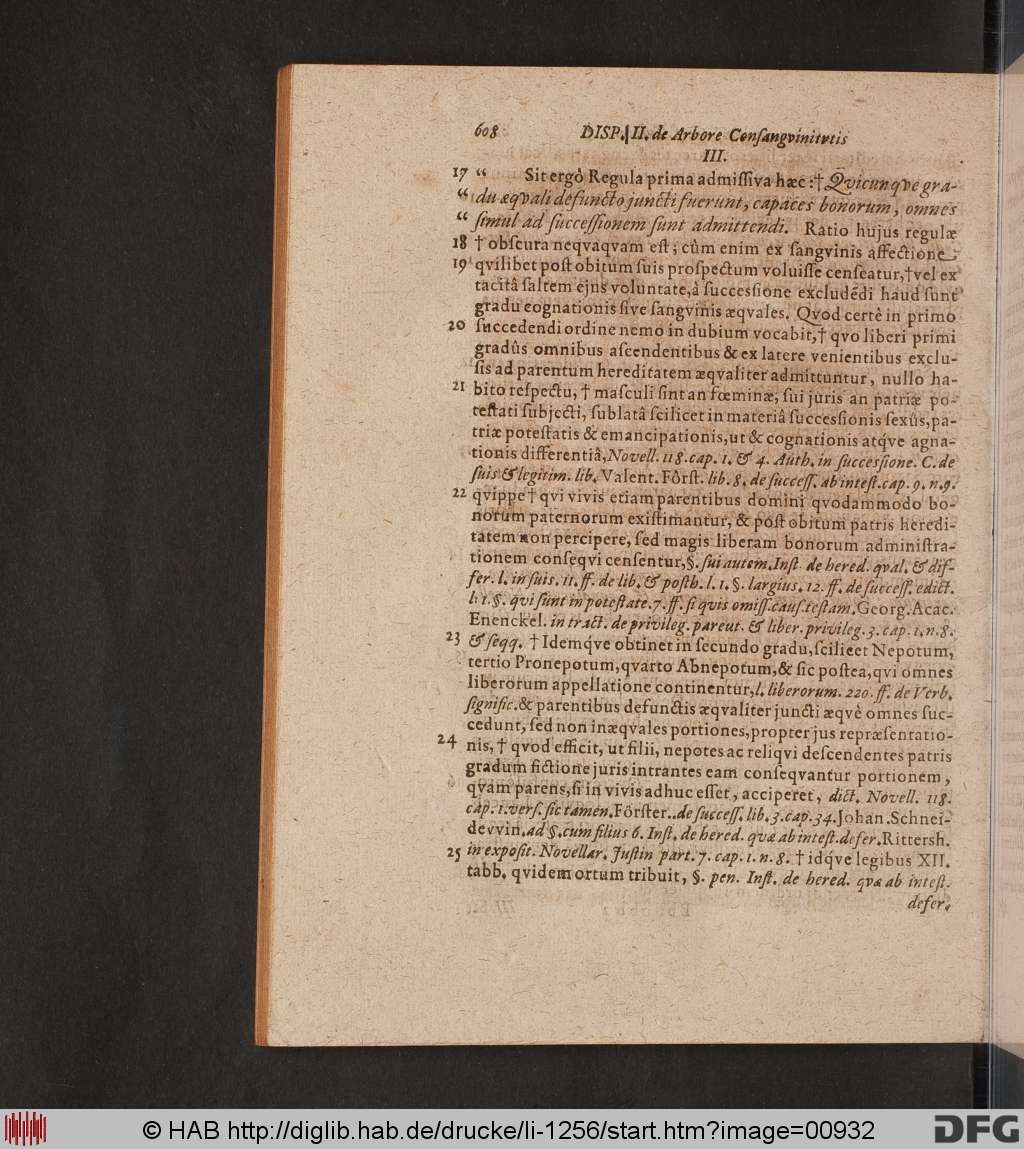 608 DISP. II. de Arbore Conſangvinitvtis
III.
17 “ Sit ergò Regula prima admiſſiva hæc: † Qvicunqve gra-
“ du æqvali defuncto juncti fuerunt, capaces bonorum, omnes
“ ſimul ad ſucceſſionem ſunt admittendi. Ratio hujus regulæ
18 † obſcura neqvaqvam eſt; cûm enim ex ſangvinis affectione
19 qvilibet poſt obitum ſuis proſpectum voluiſſe cenſeatur, † vel ex
tacitâ ſaltem ejns voluntate, à ſucceſſione excludēdi haud ſunt
gradu eognationis ſive ſangvinis æqvales. Qvod certè in primo
20 ſuccedendi ordine nemo in dubium vocabit, † qvo liberi primi
gradûs omnibus aſcendentibus & ex latere venientibus exclu-
ſis ad parentum hereditatem æqvaliter admittuntur, nullo ha-
21 bito reſpectu, † maſculi ſint an fœminæ, ſui juris an patriæ po-
teſtati ſubjecti, ſublatâ ſcilicet in materiâ ſucceſſionis ſexûs, pa-
triæ poteſtatis & emancipationis, ut & cognationis atq́ve agna-
tionis differentiâ, Novell. 118. cap. 1. & 4. Auth. in ſucceſsione. C. de
ſuis & legitim. lib. Valent. Fôrſt. lib. 8. de ſucceſſ. ab inteſt. cap. 9. n. 9.
22 qvippe † qvi vivis etiam parentibus domini qvodammodo bo-
norum paternorum exiſtimantur, & poſt obitum patris heredi-
tatem non percipere, ſed magis liberam bonorum adminiſtra-
tionem conſeqvi cenſentur, §. ſui autem. Inſt. de hered. qval. & dif-
fer. l. in ſuis. 11. ff. de lib. & poſth. l. 1. §. largius. 12. ff. de ſucceſſ. edict.
l. 1. §. qvi ſunt in poteſtate. 7. ff. ſi qvis omiſſ. cauſ. teſtam. Georg. Acac.
Enenckel. in tract. de privileg. pareut. & liber. privileg. 3. cap. 1. n. 8.
23 & ſeqq. † Idemq́ve obtinet in ſecundo gradu, ſcilieet Nepotum,
tertio Pronepotum, qvarto Abnepotum, & ſic poſtea, qvi omnes
liberorum appellatione continentur, l. liberorum. 220. ff. de Verb.
ſignific. & parentibus defunctis æqvaliter juncti æqvè omnes ſuc-
cedunt, ſed non inæqvales portiones, propter jus repræſentatio-
24 nis, † qvod efficit, ut filii, nepotes ac reliqvi deſcendentes patris
gradum fictione juris intrantes eam conſeqvantur portionem,
qvam parens, ſi in vivis adhuc eſſet, acciperet, dict. Novell. 118.
cap. 1. verſ. ſic tamen. Fôrſter.. de ſucceſſ. lib. 3. cap. 34. Johan. Schnei-
devvin. ad §. cum filius 6. Inſt. de hered. qvæ ab inteſt. defer. Rittersh.
25 in expoſit. Novellar. Juſtin part. 7. cap. 1. n. 8. † idq́ve legibus XII.
tabb. qvidem ortum tribuit, §. pen. Inſt. de hered. qvæ ab inteſt.
defer.
© HAB http://diglib.hab.de/drucke/li-1256/start.htm?image=00932
DFG